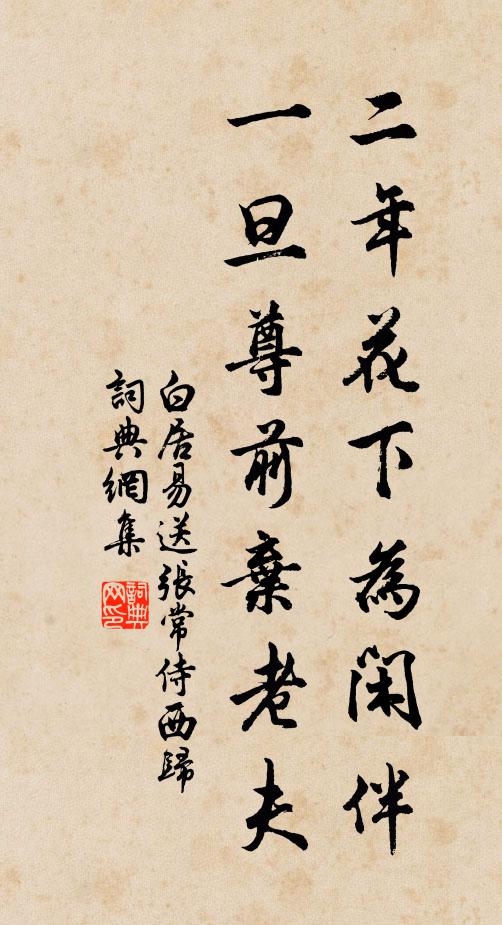 二年花下為閑伴
一旦尊前棄老夫
白居易送張常侍西歸
詞典網集
詞典网印